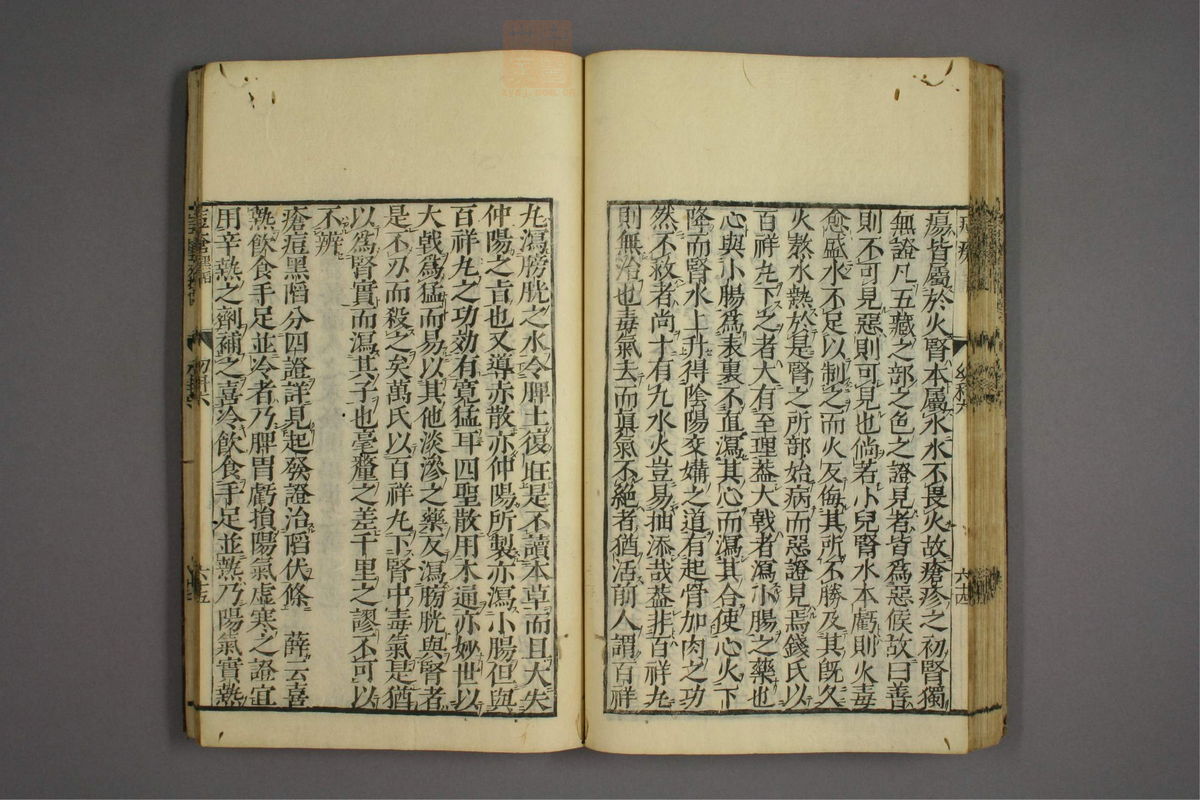 瘍皆屬於火腎本屬水水不畏火故瘡疹之初腎獨
無證凡五藏之部之色之證見者皆爲惡候故曰善
則不可見惡則可見也倘若小兒腎水本虧則火毒
愈盛水不足以制之而火反侮其所不勝及其既久
火熬水熱於是腎之所部始病而惡證見焉錢氏以
百祥丸下之者大有至理葢大戟者瀉小腸之藥也
心與小腸爲表裏不直瀉其心而瀉其合使心火下
降而腎水上升得陰陽交媾之道有起骨加肉之功
然不救者尚十有九水火豈易抽添哉葢非百祥丸
則無治也毒氣去而眞氣不絶者猶活前人謂百祥
丸瀉膀胱之水令脾土復旺是不讀本草而且大失
仲陽之旨也又導赤散亦仲陽所製亦瀉小腸但與
百祥丸之功効有寛猛耳四聖散用木通亦妙世以
大戟爲猛而易以其他淡滲之藥反瀉膀胱與腎者
是不刃而殺之矣萬氏以百祥丸下腎中毒氣是猶
以爲腎實而瀉其子也毫釐之差千里之謬不可以
不辨
瘡痘黑陷分四證詳見起發證治陷伏條 薛云喜
熱飲食手足並冷者乃脾胃虧損陽氣虛寒之證宜
用辛熱之劑補之喜冷飲食手足並熱乃陽氣實熱